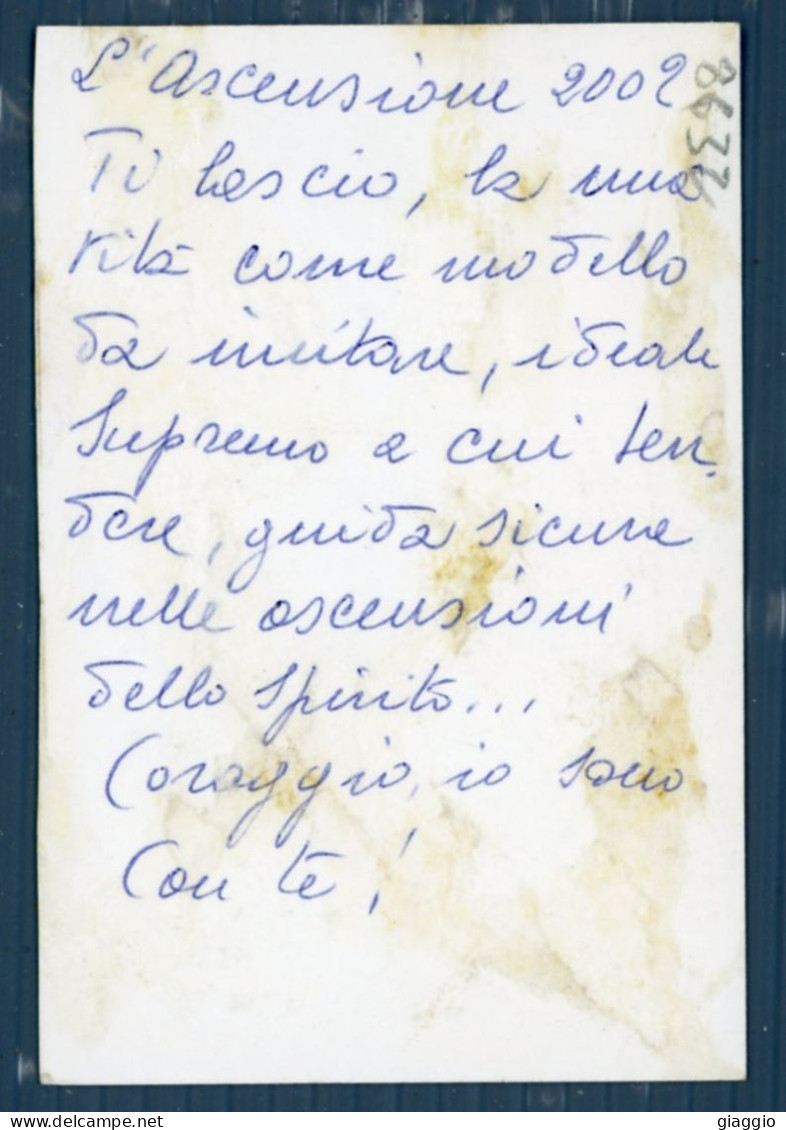 L'Ascensione 2002
Ti lascio, la mia
vita come modello
da imitare, ideale
Supremo a cui ten-
dere, guida sicura
nelle ascensioni
dello Spirito...
Coraggio, io sono
Con te!
giaggio